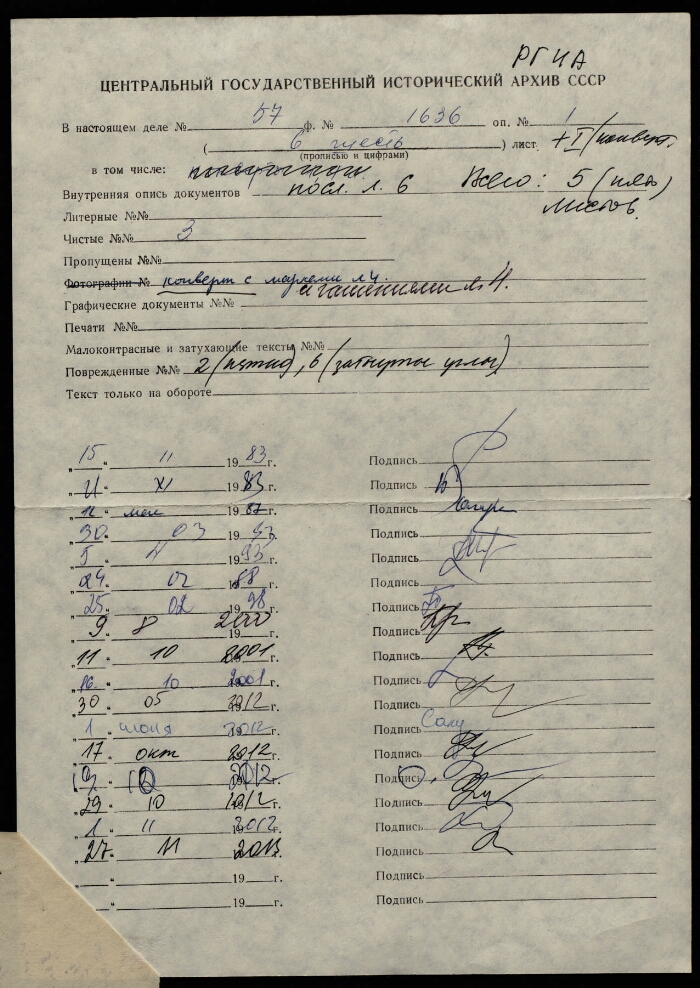 РГИА
ЦЕНТРАЛЬНЫЙ ГОСУДАРСТВЕННЫЙ ИСТОРИЧЕСКИЙ АРХИВ СССР
В настоящем деле № 57 ф. № 1636 оп. № 1
( 6 шесть ) лист. +I/конверт.
(прописью и цифрами)
в том числе:
Внутренняя опись документов посл. л. 6 Всего: 5 (пять)
листов.
Литерные №№
Чистые №№ 3
Пропущены №№
Фотографии № конверт с марками л 4.
и гашениями л. 4.
Графические документы №№
Печати №№
Малоконтрасные и затухающие тексты №№
Поврежденные №№ 2 (пятна), 6 (затерты углы)
Текст только на обороте
„15“ 11 1983 г. Подпись
„21“ XI 1983 г. Подпись
„12“ мая 1987 г. Подпись
„30“ 03 1993 г. Подпись
„5“ 1993 г. Подпись
„24“ 02 1998 г. Подпись
„25“ 02 1998 г. Подпись
„9“ 8 2000 г. Подпись
„11“ 10 2001 г. Подпись
„16“ 10 2001 г. Подпись
„30“ 05 2012 г. Подпись
„1“ июня 2012 г. Подпись
„17“ окт 2012 г. Подпись
2012 г. Подпись
„29“ 10 2012 г. Подпись
„1“ 11 2012 г. Подпись
„27“ 11 2013 г. Подпись
„ “ 19 г. Подпись
„ “ 19 г. Подпись